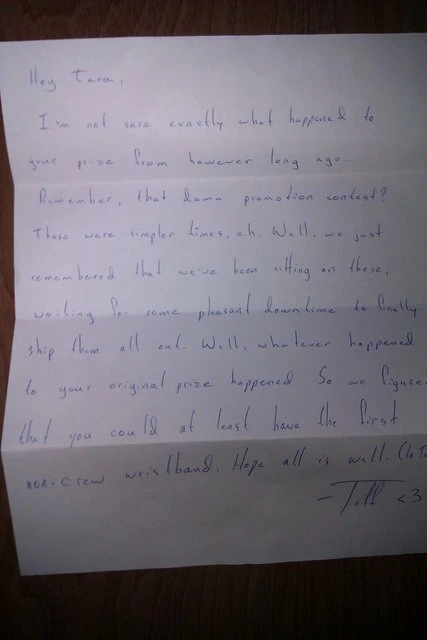 Hey Tara,
I'm not sure exactly what happened to
your prize from however long ago...
Remember, that damn promotion contest?
Those were simpler times, eh. Well, we just
remembered that we've been sitting on these,
waiting for some pleasant downtime to finally
ship them all out. Well, whatever happened
to your original prize happened So we figure
that you could at least have the first
crew wristband. Hope all is well.
- Jeff <3